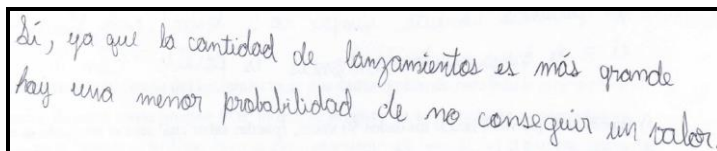 Sí, ya que la cantidad de lanzamientos es más grande
hay una menor probabilidad de no conseguir un valor.